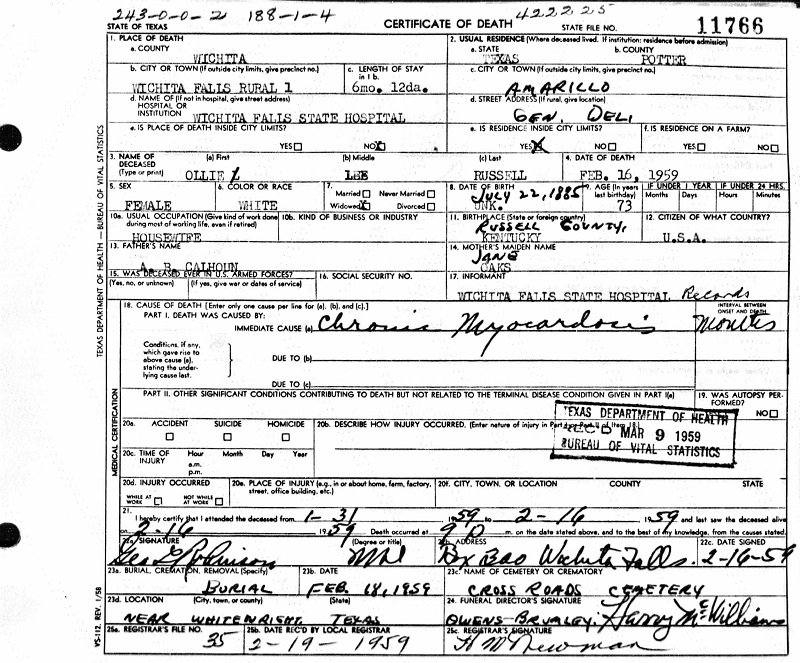 243-0-0-2 188-1-4 422225
STATE OF TEXAS CERTIFICATE OF DEATH STATE FILE NO. 11766
1. PLACE OF DEATH 2. USUAL RESIDENCE (Where deceased lived. If institution: residence before admission)
a. COUNTY a. STATE b. COUNTY
WICHITA TEXAS POTTER
b. CITY OR TOWN (If outside city limits, give precinct no.) c. LENGTH OF STAY in 1 b. c. CITY OR TOWN (If outside city limits, give precinct no.)
WICHITA FALLS RURAL 1 6mo. 12da. AMARILLO
d. NAME OF (If not in hospital, give street address) HOSPITAL OR INSTITUTION d. STREET ADDRESS (If rural, give location)
WICHITA FALLS STATE HOSPITAL GEN. DELI
e. IS PLACE OF DEATH INSIDE CITY LIMITS? e. IS RESIDENCE INSIDE CITY LIMITS? f. IS RESIDENCE ON A FARM?
YES NO X YES X NO YES NO
3. NAME OF DECEASED (Type or print) (a) First (b) Middle (c) Last 4. DATE OF DEATH
OLLIE L LEE RUSSELL FEB. 16, 1959
5. SEX 6. COLOR OR RACE 7. Married Never Married Widowed X Divorced 8. DATE OF BIRTH 9. AGE (In years last birthday) IF UNDER 1 YEAR IF UNDER 24 HRS.
Months Days Hours Minutes
FEMALE WHITE JULY 22, 1885 UNK. 73
10a. USUAL OCCUPATION (Give kind of work done during most of working life, even if retired) 10b. KIND OF BUSINESS OR INDUSTRY 11. BIRTHPLACE (State or foreign country) 12. CITIZEN OF WHAT COUNTRY?
HOUSEWIFE RUSSELL COUNTY, KENTUCKY U.S.A.
13. FATHER'S NAME 14. MOTHER'S MAIDEN NAME
A. B. CALHOUN JANE OAKS
15. WAS DECEASED EVER IN U.S. ARMED FORCES? 16. SOCIAL SECURITY NO. 17. INFORMANT
(Yes, no, or unknown) (If yes, give war or dates of service)
WICHITA FALLS STATE HOSPITAL Records
18. CAUSE OF DEATH [Enter only one cause per line for (a), (b), and (c).] INTERVAL BETWEEN ONSET AND DEATH
PART I. DEATH WAS CAUSED BY:
IMMEDIATE CAUSE (a) Chronic Myocardosis Months
Conditions, if any, which gave rise to above cause (a), stating the underlying cause last.
DUE TO (b)
DUE TO (c)
PART II. OTHER SIGNIFICANT CONDITIONS CONTRIBUTING TO DEATH BUT NOT RELATED TO THE TERMINAL DISEASE CONDITION GIVEN IN PART I(a) 19. WAS AUTOPSY PERFORMED?
NO
20a. ACCIDENT SUICIDE HOMICIDE 20b. DESCRIBE HOW INJURY OCCURRED. (Enter nature of injury in Part I or Part II of Item 18.)
TEXAS DEPARTMENT OF HEALTH
REC'D MAR 9 1959
BUREAU OF VITAL STATISTICS
20c. TIME OF INJURY Hour Month Day Year
a.m.
p.m.
20d. INJURY OCCURRED 20e. PLACE OF INJURY (e.g., in or about home, farm, factory, street, office building, etc.) 20f. CITY, TOWN, OR LOCATION COUNTY STATE
WHILE AT WORK NOT WHILE AT WORK
21. I hereby certify that I attended the deceased from 1-31 1959 to 2-16 1959 and last saw the deceased alive
on 2-16 1959 Death occurred at m. on the date stated above, and to the best of my knowledge, from the causes stated.
SIGNATURE (Degree or title) ADDRESS 22c. DATE SIGNED
Geo G Robinson Md Box 300 Wichita Falls. 2-16-59
23a. BURIAL, CREMATION, REMOVAL (Specify) 23b. DATE 23c. NAME OF CEMETERY OR CREMATORY
BURIAL FEB. 18, 1959 CROSS ROADS CEMETERY
23d. LOCATION (City, town, or county) (State) 24. FUNERAL DIRECTOR'S SIGNATURE
NEAR WHITEWRIGHT, TEXAS OWENS-BRUMLEY: Harry McWilliams
25a. REGISTRAR'S FILE NO. 25b. DATE REC'D BY LOCAL REGISTRAR 25c. REGISTRAR'S SIGNATURE
35 2-19-1959 H M Newman
TEXAS DEPARTMENT OF HEALTH—BUREAU OF VITAL STATISTICS
MEDICAL CERTIFICATION
VS-112, REV. 1/58